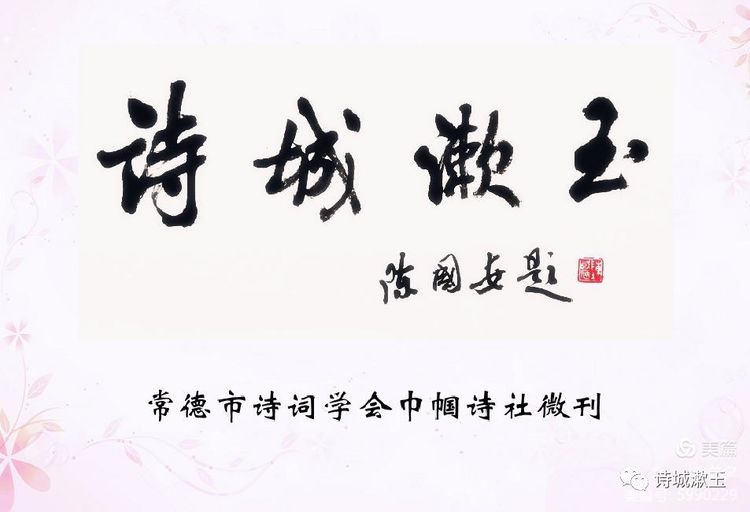 诗城漱玉
陈国安题
常德市诗词学会巾帼诗社微刊
美篇
诗城漱玉
5990229